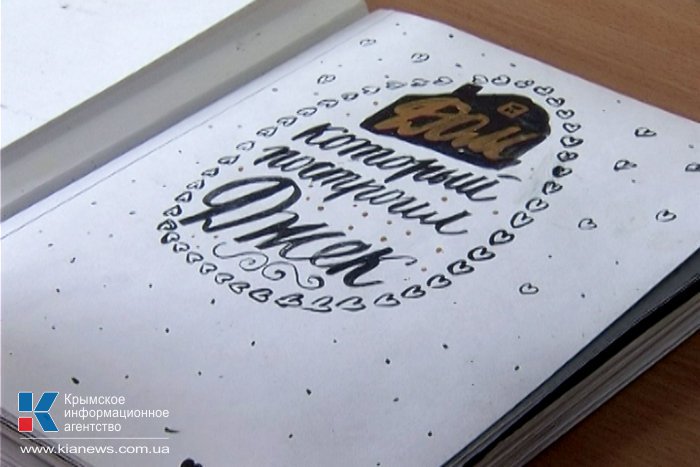 Дом
который
построил
Джек
Крымское
информационное
агентство
www.kianews.com.ua